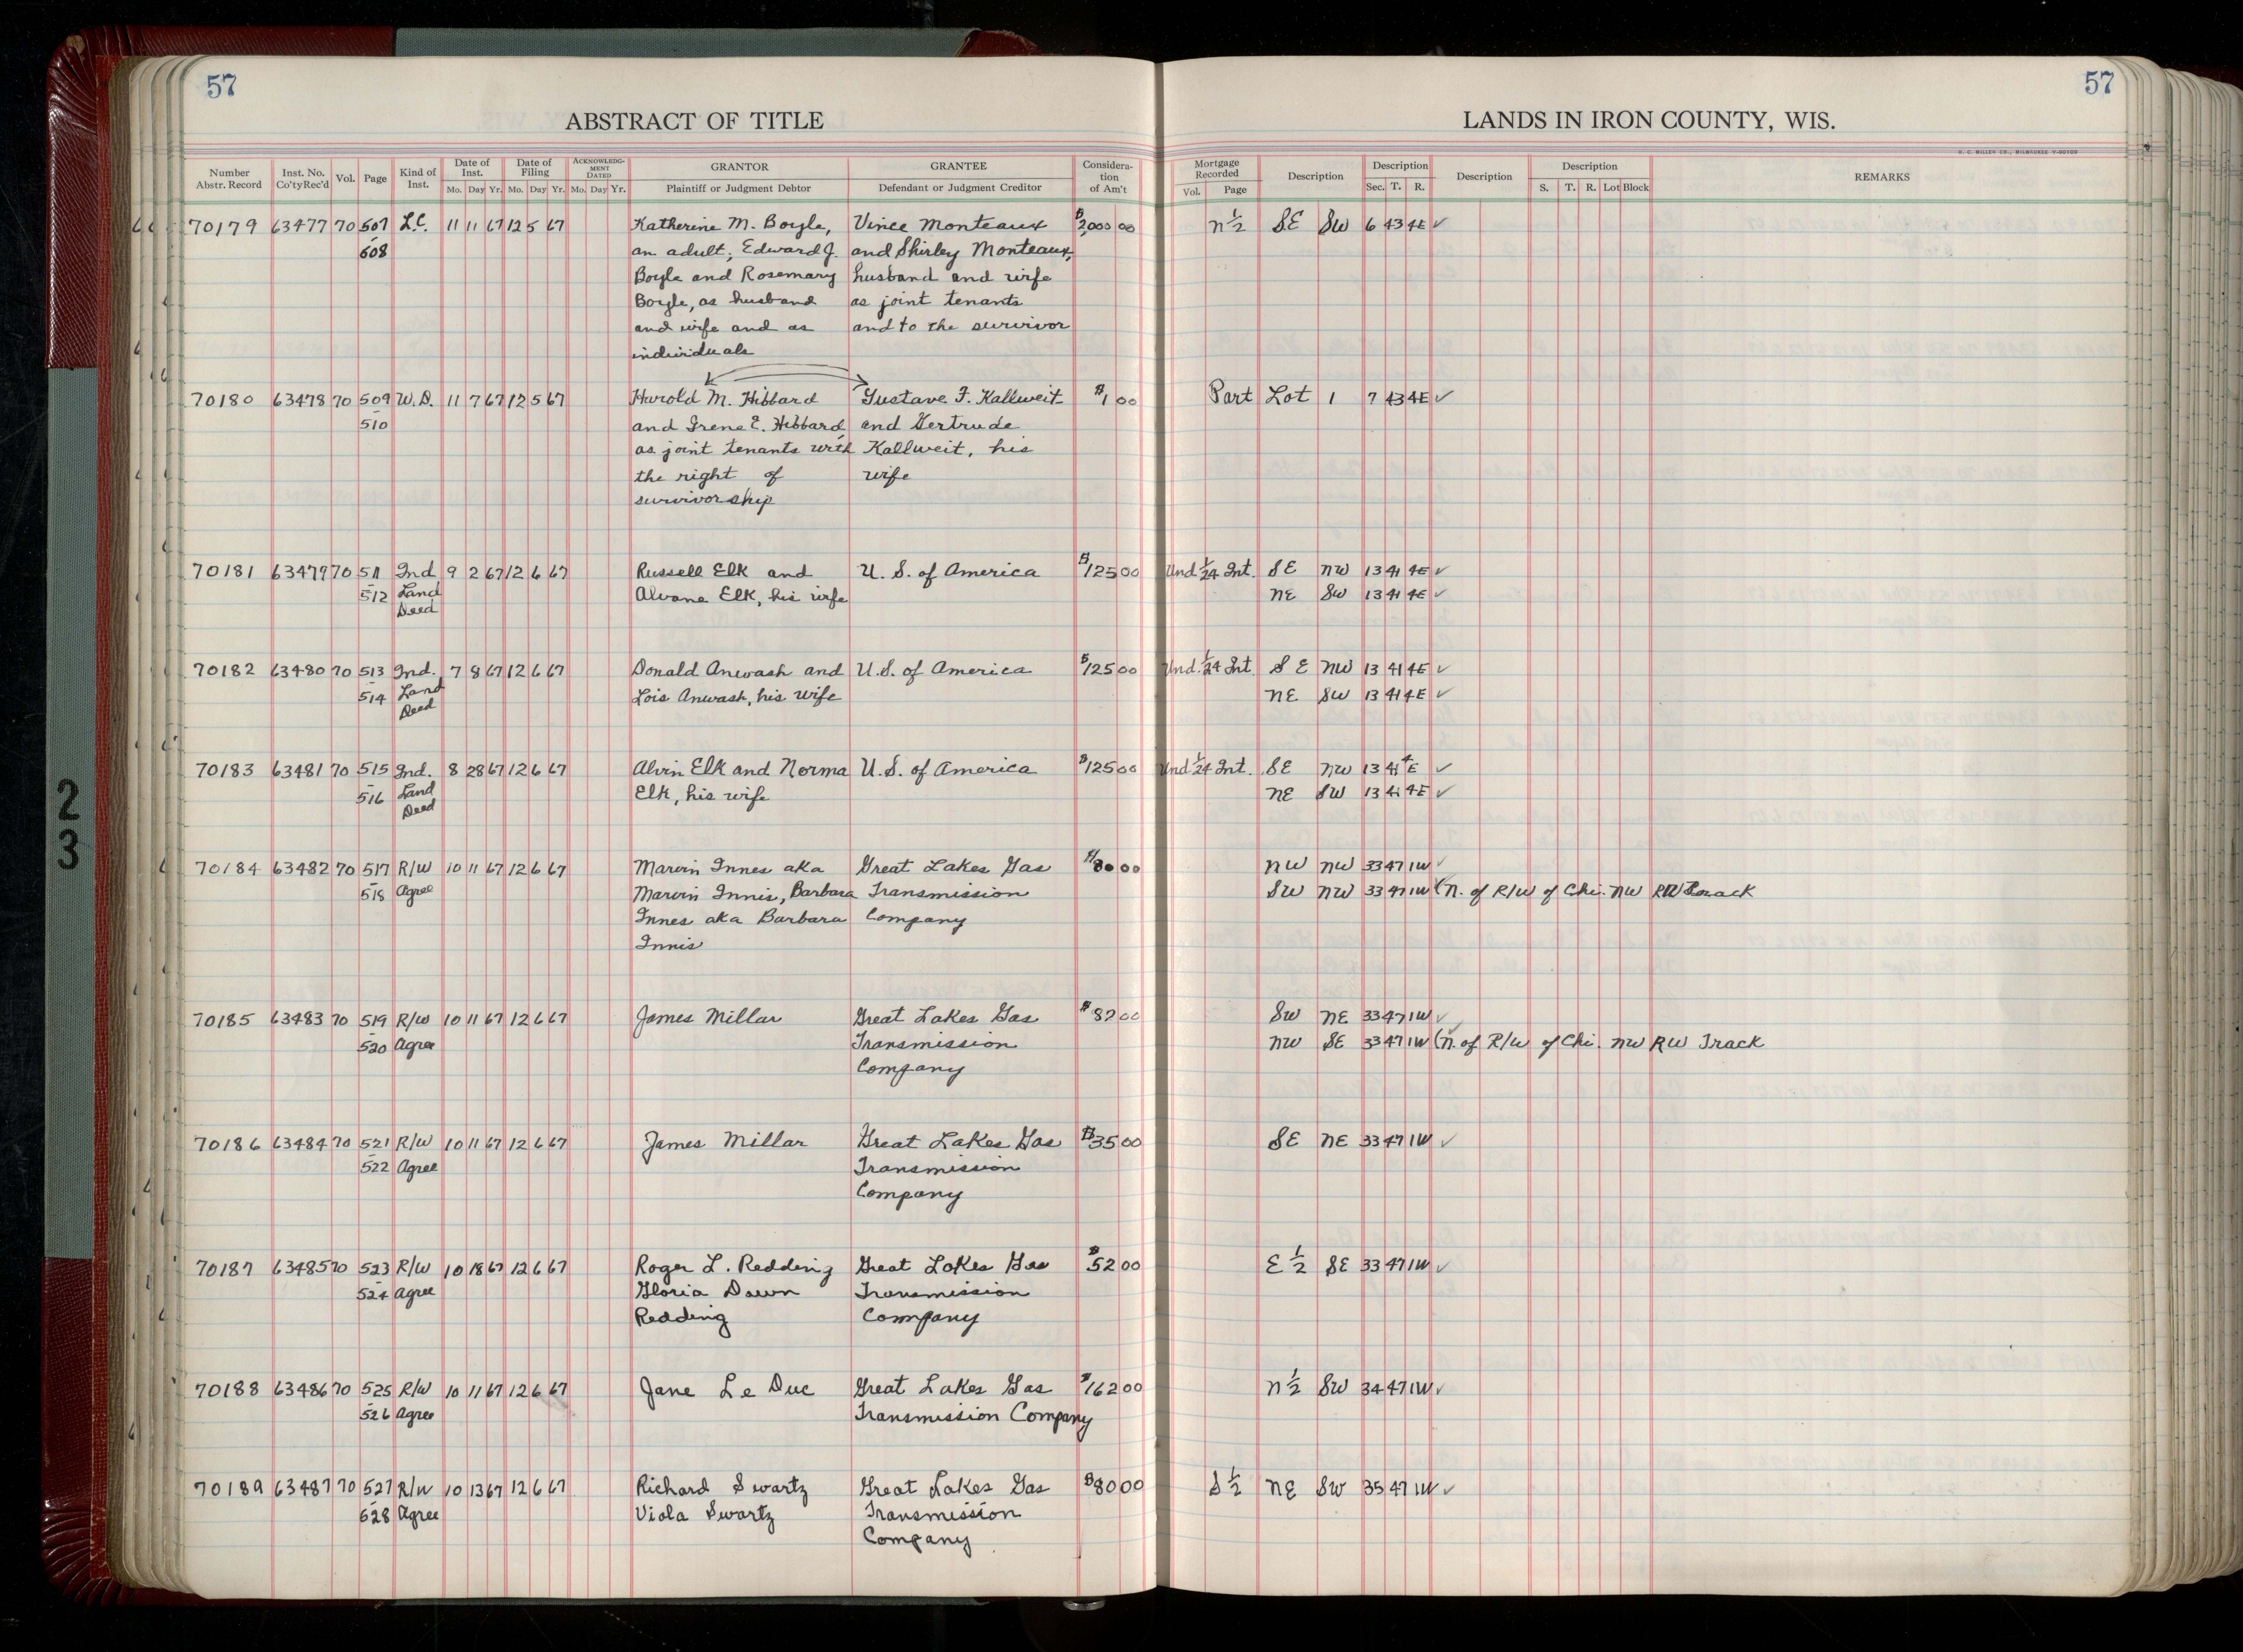 57
57
ABSTRACT OF TITLE
LANDS IN IRON COUNTY, WIS.
H. C. MILLER CO., MILWAUKEE
Number Abstr. Record Inst. No. Co'ty Rec'd Vol. Page Kind of Inst. Date of Inst. Mo. Day Yr. Date of Filing Mo. Day Yr. ACKNOWLEDGMENT DATED Mo. Day Yr. GRANTOR Plaintiff or Judgment Debtor GRANTEE Defendant or Judgment Creditor Consideration of Am't Mortgage Recorded Vol. Page Description Description Sec. T. R. Description Description S. T. R. Lot Block REMARKS
70179 63477 70 507 L.C. 11 11 67 12 5 67 Katherine M. Boyle, Vince Monteaux $2,000 00 N 1/2 SE SW 6 43 4E ✓
- 508 an adult; Edward J. and Shirley Monteaux,
Boyle and Rosemary husband and wife
Boyle, as husband as joint tenants
and wife and as and to the survivor
individuals
70180 63478 70 509 W.D. 11 7 67 12 5 67 Harold M. Hibbard Gustave F. Kallweit $1 00 Part Lot 1 7 43 4E ✓
- 510 and Irene E. Hibbard, and Gertrude
as joint tenants with Kallweit, his
the right of wife
survivorship
70181 63479 70 511 Ind. 9 2 67 12 6 67 Russell Elk and U. S. of America $125 00 Und 1/24 Int. SE NW 13 41 4E ✓
- 512 Land Alvane Elk, his wife NE SW 13 41 4E ✓
Deed
70182 63480 70 513 Ind. 7 8 67 12 6 67 Donald Anwash and U.S. of America $125 00 Und. 1/24 Int. SE NW 13 41 4E ✓
- 514 Land Lois Anwash, his wife NE SW 13 41 4E ✓
Deed
70183 63481 70 515 Ind. 8 28 67 12 6 67 Alvin Elk and Norma U.S. of America $125 00 Und 1/24 Int. SE NW 13 41 4E ✓
- 516 Land Elk, his wife NE SW 13 41 4E ✓
Deed
70184 63482 70 517 R/W 10 11 67 12 6 67 Marvin Innes aka Great Lakes Gas $80 00 NW NW 33 47 1W ✓
- 518 Agree Marvin Innis, Barbara Transmission SW NW 33 47 1W (N. of R/W of Chi. NW RW Track
Innes aka Barbara Company
Innis
70185 63483 70 519 R/W 10 11 67 12 6 67 James Millar Great Lakes Gas $82 00 SW NE 33 47 1W ✓
- 520 Agree Transmission NW SE 33 47 1W (N. of R/W of Chi. NW RW Track
Company
70186 63484 70 521 R/W 10 11 67 12 6 67 James Millar Great Lakes Gas $35 00 SE NE 33 47 1W ✓
- 522 Agree Transmission
Company
70187 63485 70 523 R/W 10 18 67 12 6 67 Roger L. Redding Great Lakes Gas $52 00 E 1/2 SE 33 47 1W ✓
- 524 Agree Gloria Dawn Transmission
Redding Company
70188 63486 70 525 R/W 10 11 67 12 6 67 Jane Le Duc Great Lakes Gas $162 00 N 1/2 SW 34 47 1W ✓
- 526 Agree Transmission Company
70189 63487 70 527 R/W 10 13 67 12 6 67 Richard Swartz Great Lakes Gas $80 00 S 1/2 NE SW 35 47 1W ✓
- 528 Agree Viola Swartz Transmission
Company
2
3